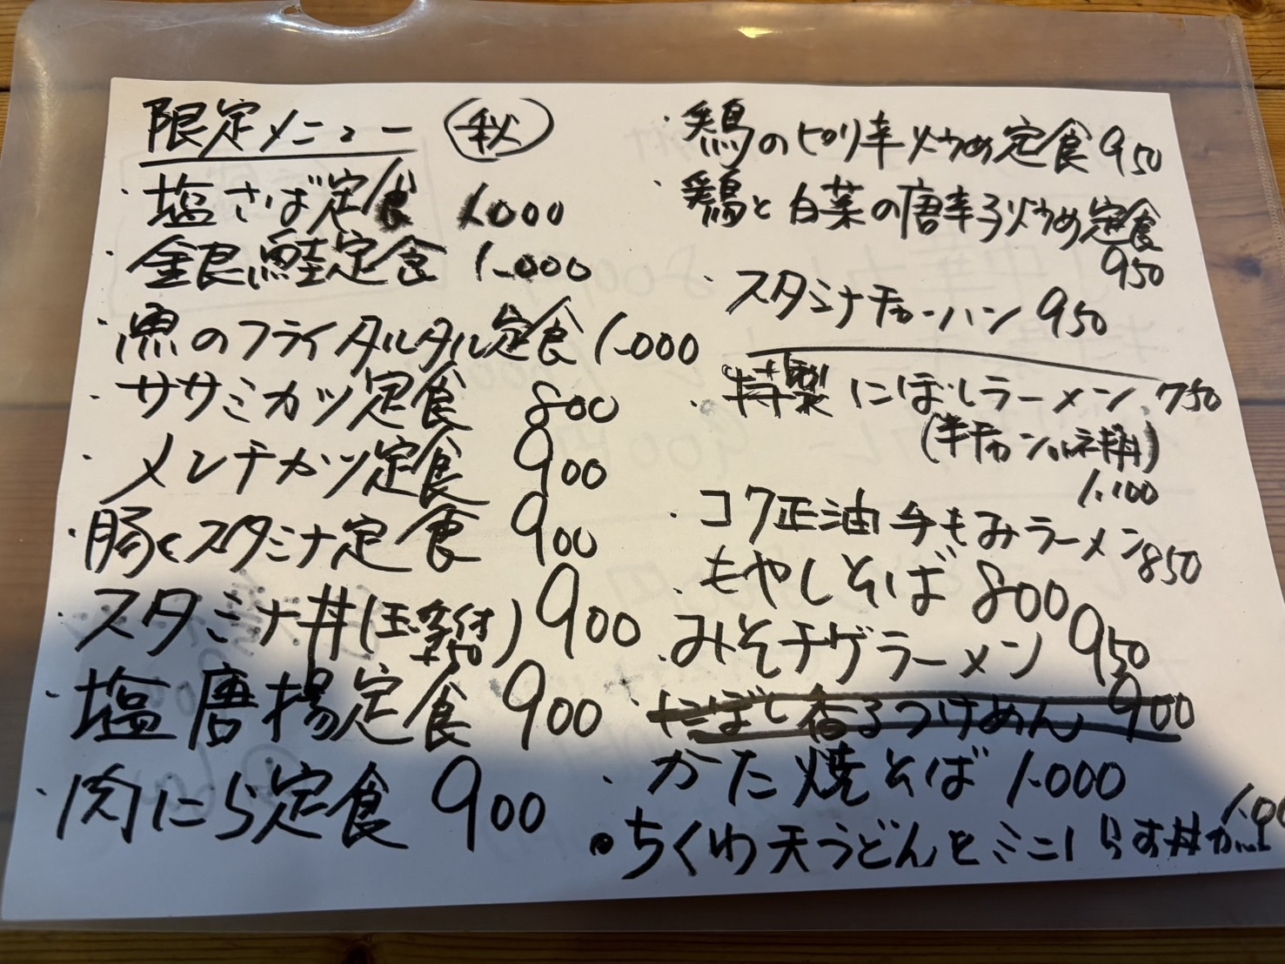 限定メニュー 秋
・塩さば定食 1.000
・銀鮭定食 1.000
・魚のフライタルタル定食 1.000
・ササミカツ定食 800
・メンチカツ定食 900
・豚くスタミナ定食 900
・スタミナ丼(玉子 付+50) 900
・塩唐揚定食 900
・肉にら定食 900
・鶏のピリ辛炒め定食 950
・鶏と白菜の唐辛子炒め定食
950
・スタミナチャーハン 950
・特製にぼしラーメン 750
(半チャーンorネギ丼)
1.100
・コク正油手もみラーメン 850
・もやしそば 800
・みそチゲラーメン 950
・にぼし香るつけめん 900
・かた焼そば 1.000
・ちくわ天うどんとミニしらす丼